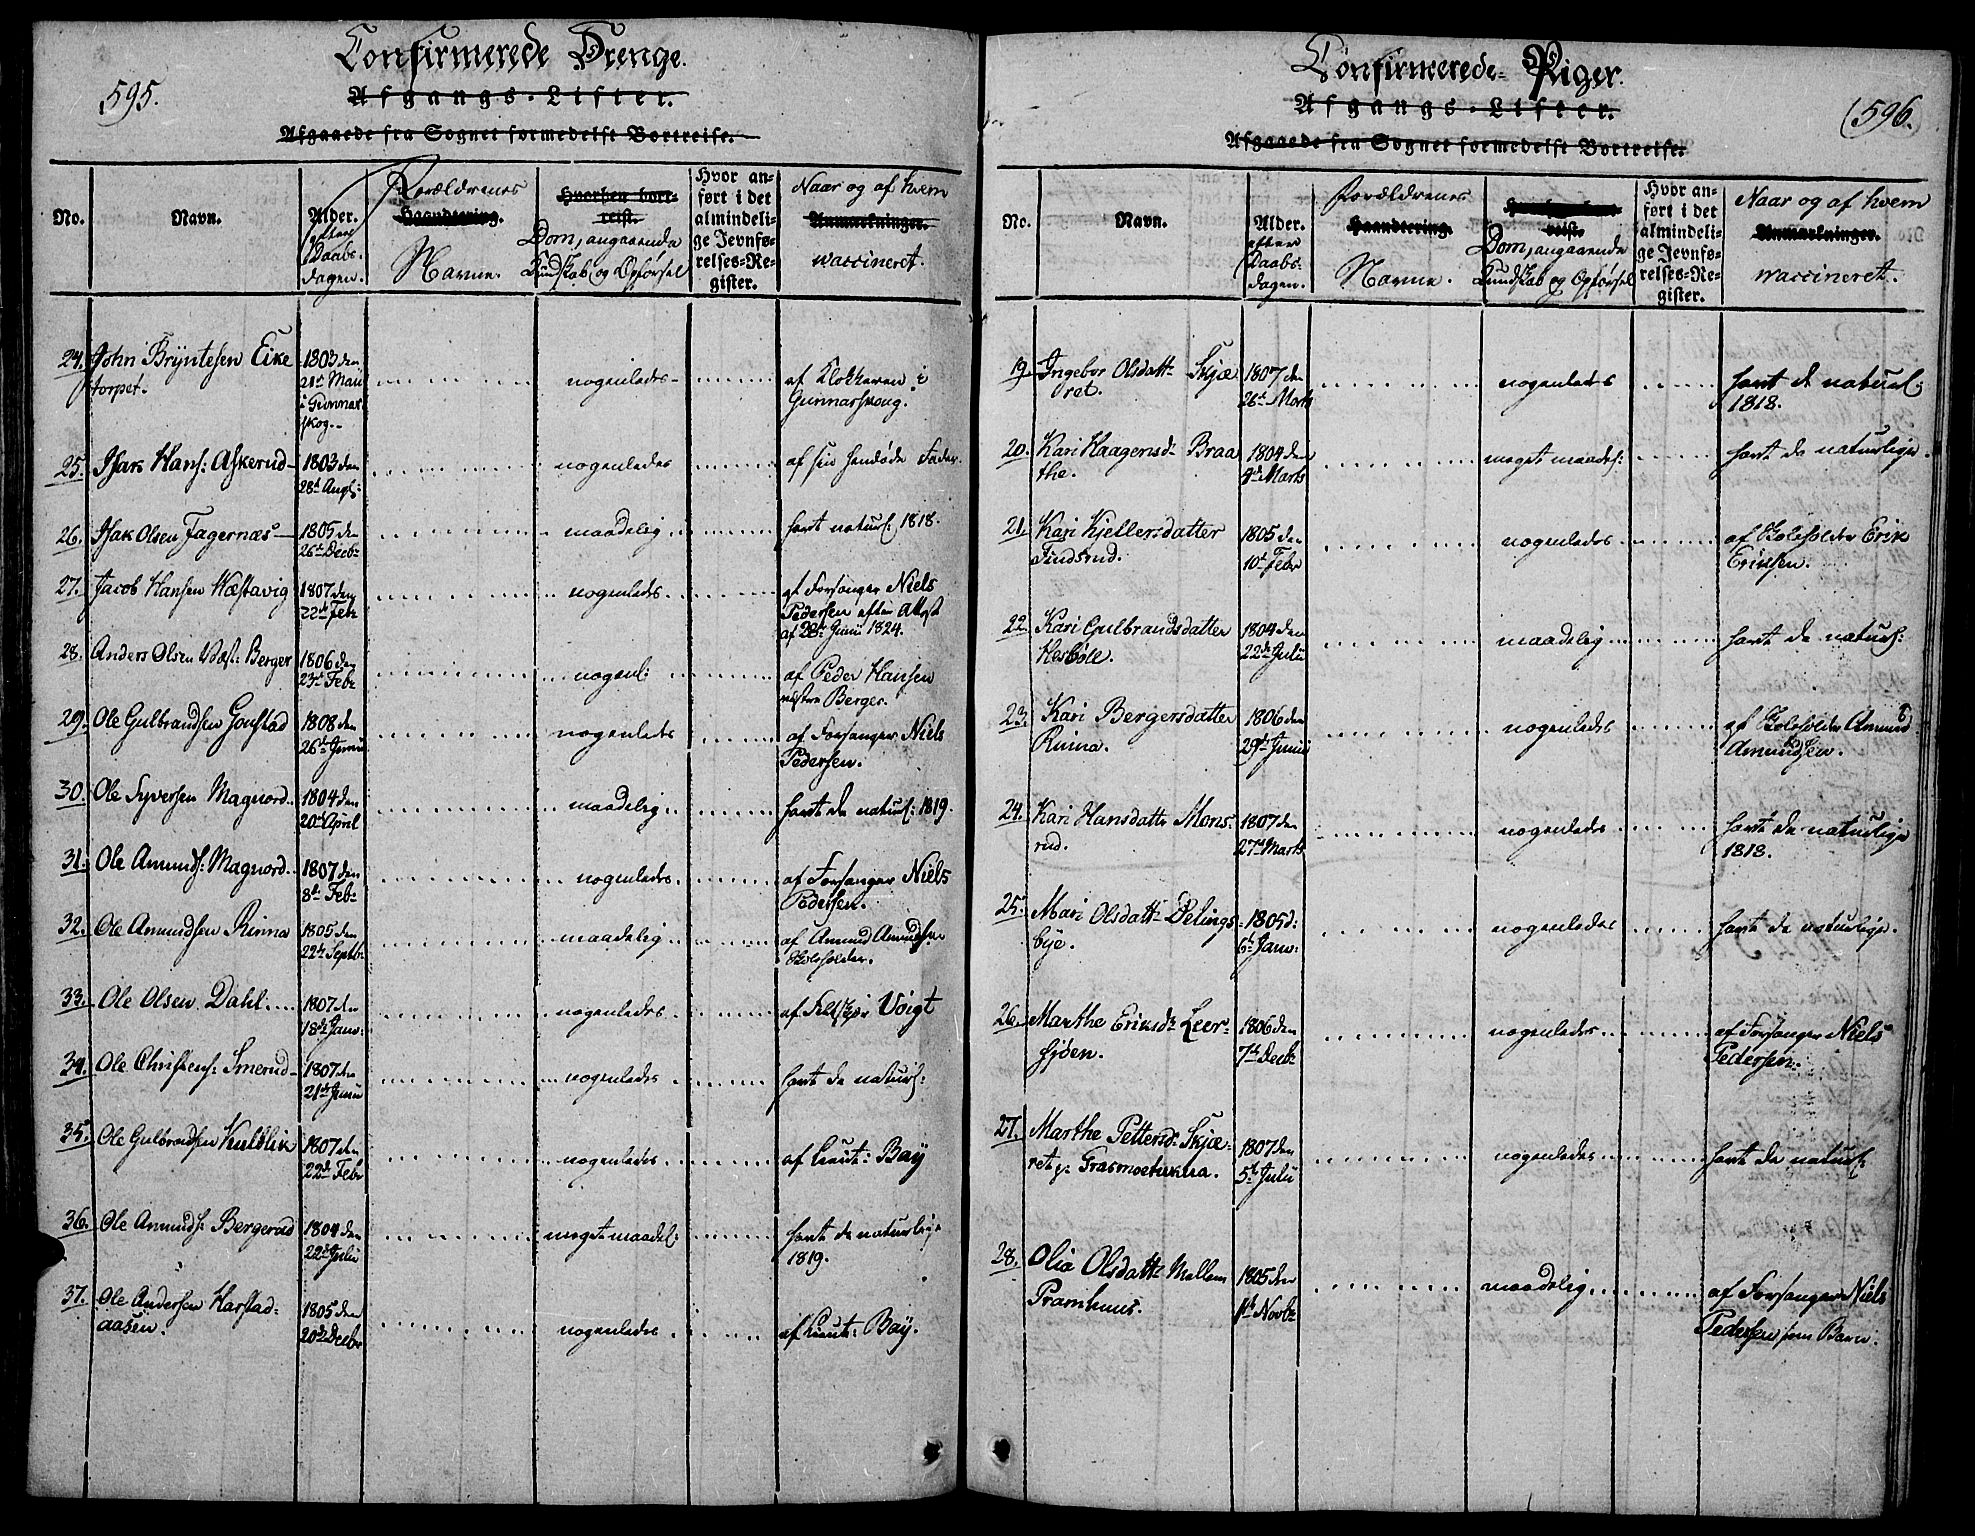 595.
Confirmerede Drenge.
Afgangs-Lister.
Afgaaede fra Sognet formedelst Bortreise.
No.
Navn.
Alder.
efter
Daabs-
dagen.
Forældrenes
Haandtering.
Navne.
Hvorhen bort-
reist.
Dom, angaaende
Kundskab og Opførsel
Hvor an-
ført i det
almindeli-
ge Jevnfø-
relses-Re-
gister.
Naar og af hvem
Anmærkninger.
vaccineret.
24. John Bryntesen Eike
torpet.
1803 den
21d Maii
i Gunnar
skog.
nogenledes
af Klokkeren i
Gunnarskoug.
25. Isak Hans: Askerud
1803 den
28d Augs:
nogenledes
af sin hendøde Fader.
26. Isak Olsen Fagernæs
1805 den
26d Decbr
maadelig
havt naturl: 1818.
27. Jacob Hansen Wæstavig
1807 den
22d Febr
nogenledes
af Forsanger Niels
Pedersen efter Attest
af 28d Junii 1824.
28. Anders Olsen Væst: Berger
1806 den
23d Febr
nogenl:
af Peder Hansen
Berger.
29. Ole Gulbrandsen Goustad
1808 den
26d Junii
nogenledes
af Forsanger Niels
Pedersen.
30. Ole Syversen Magnord
1804 den
20d April
maadelig
havt de naturl: 1819.
31. Ole Amunds: Magnord
1807 den
8d Febr
nogenledes
af Forsanger Niels
Pedersen.
32. Ole Amundsen Rinna
1805 den
22d Septbr
maadelig
af Amund Amundsen
Skoleholder.
33. Ole Olsen Dahl
1807 den
18d Janv:
nogenledes
af Feltskjær Voigt
34. Ole Christens: Smerud
1807 den
21d Junii
nogenledes
havt de naturl:
35. Ole Gulbrandsen Kulblik
1807 den
22d Febr
nogenledes
af Lieut: Bay
36. Ole Amunds: Bergerud
1804 den
22d Julii
meget maadel:
havt de naturlige
1819.
37. Ole Andersen Harstad-
aasen.
1805 den
20d Decbr
nogenledes
af Lieut: Bay.
(596.
Confirmerede Piger.
Afgangs-Lister.
Afgaaede fra Sognet formedelst Bortreise.
No.
Navn.
Alder.
efter
Daabs-
dagen.
Forældrenes
Haandtering.
Navne.
reist.
Dom, angaaende
Kundskab og Opførsel
Hvor an-
ført i det
almindeli-
ge Jevnfø-
relses-Re-
gister.
Naar og af hvem
Anmærkninger.
vaccineret.
19. Ingebor Olsdatt: Skjæ
ret.
1807 den
26d Marts
nogenledes
havt de naturl:
1818.
20. Kari Haagensd: Braa
the.
1804 den
4d Marts
meget maadel:
havt de naturlige.
21. Kari Kjellersdatter
Findsrud.
1805 den
10d Febr
nogenledes
af Skoleholder Erik
Eriksen.
22. Kari Gulbrandsdatter
Hesbøle.
1804 den
22d Julii
maadelig
havt de naturl:
23. Kari Bergersdatter
Rinna.
1806 den
29d Junii
nogenledes
af Skoleholder Amund
Amundsen.
24. Kari Hansdatter Mons-
rud.
1807 den
27d Marts
nogenledes
havt de naturlige
1818.
25. Mari Olsdatt: Pelings
bye.
1805 d:
6d Janv:
nogenledes
havt de naturlige.
26. Marthe Eriksd: Leer-
sjøen.
1806 den
7d Decbr
nogenledes
af Forsanger Niels
Pedersen.
27. Marthe Pettersd: Skjæ-
ret p: Grasmoetukua.
1807 den
5d Julii
nogenledes
havt de naturl:
28. Olia Olsdatt: Mellem
Pramhuus.
1805 den
1d Novbr
maadelig
af Forsanger Niels
Pedersen som Barn.